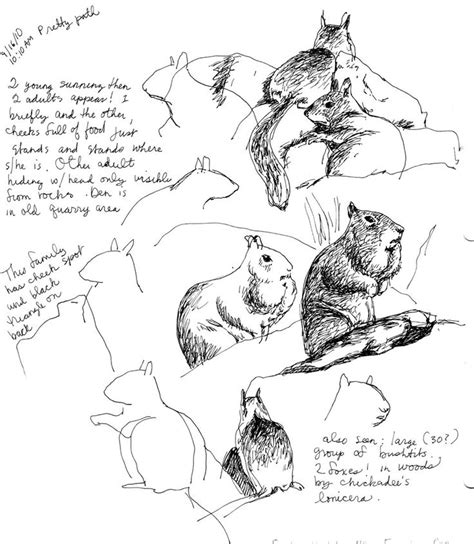 9/16/10
10:10 AM Pretty path
2 young sunning then
2 adults appear! 1
briefly and the other,
cheeks full of food just
stands and stands where
s/he is. Other adult
hiding w/ head only visible
from rocks. Den is
in old quarry area
This family
has cheek spot
and black
triangle on
back
also seen: large (30?)
group of bushtits.
2 foxes! in woods
by chickadee's
lonicera.